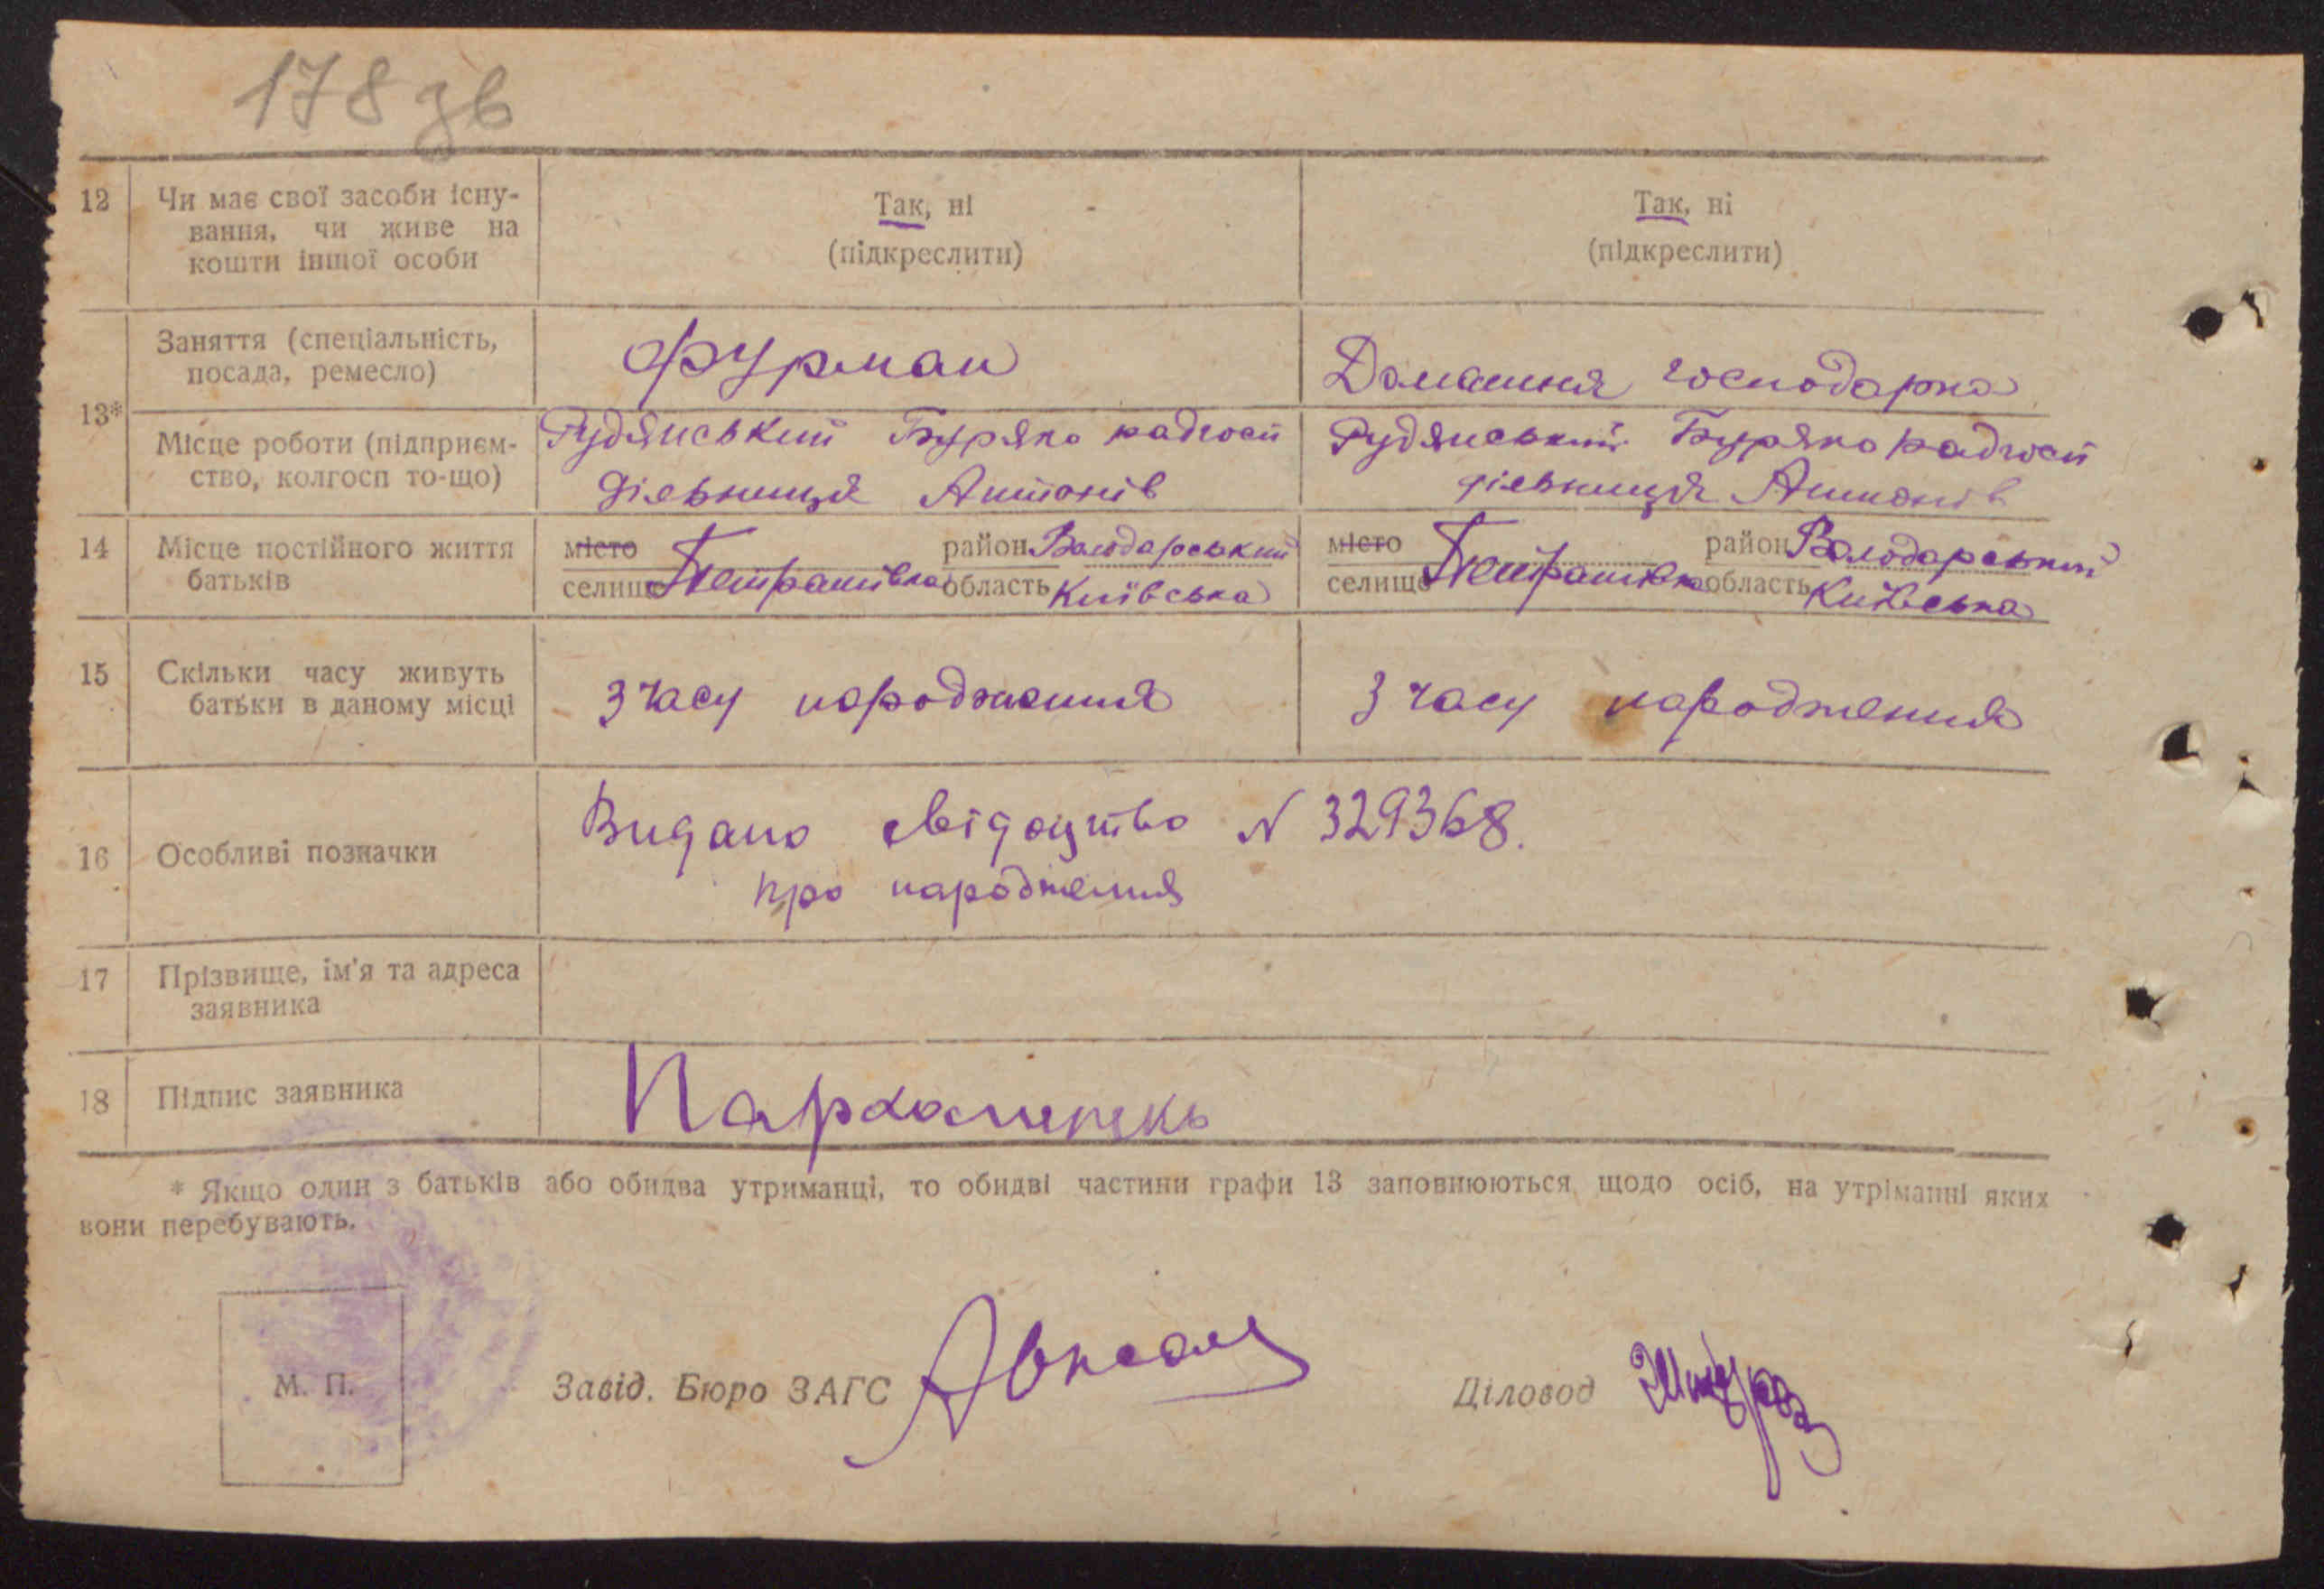 178 зв
12 Чи має свої засоби існу- Так, ні Так, ні
вання, чи живе на (підкреслити) (підкреслити)
кошти іншої особи
Заняття (спеціальність, Фурман Домашня господарка
посада, ремесло)
13*
Місце роботи (підприєм- Рудянський Буряко радгосп Рудянський Буряко радгосп
ство, колгосп то-що) дільниця Антонів дільниця Антонів
14 Місце постійного життя місто район Володарський місто район Володарський
батьків селище Петрашівка область Київська селище Петрашівка область Київська
15 Скільки часу живуть З часу народження З часу народження
батьки в даному місці
Видано свідоцтво N 329368.
16 Особливі позначки
про народження
17 Прізвище, ім'я та адреса
заявника
18 Підпис заявника Пархоменко
* Якщо один з батьків або обидва утриманці, то обидві частини графи 13 заповнюються щодо осіб, на утріманні яких
вони перебувають.
М. П. Завід. Бюро ЗАГС Діловод